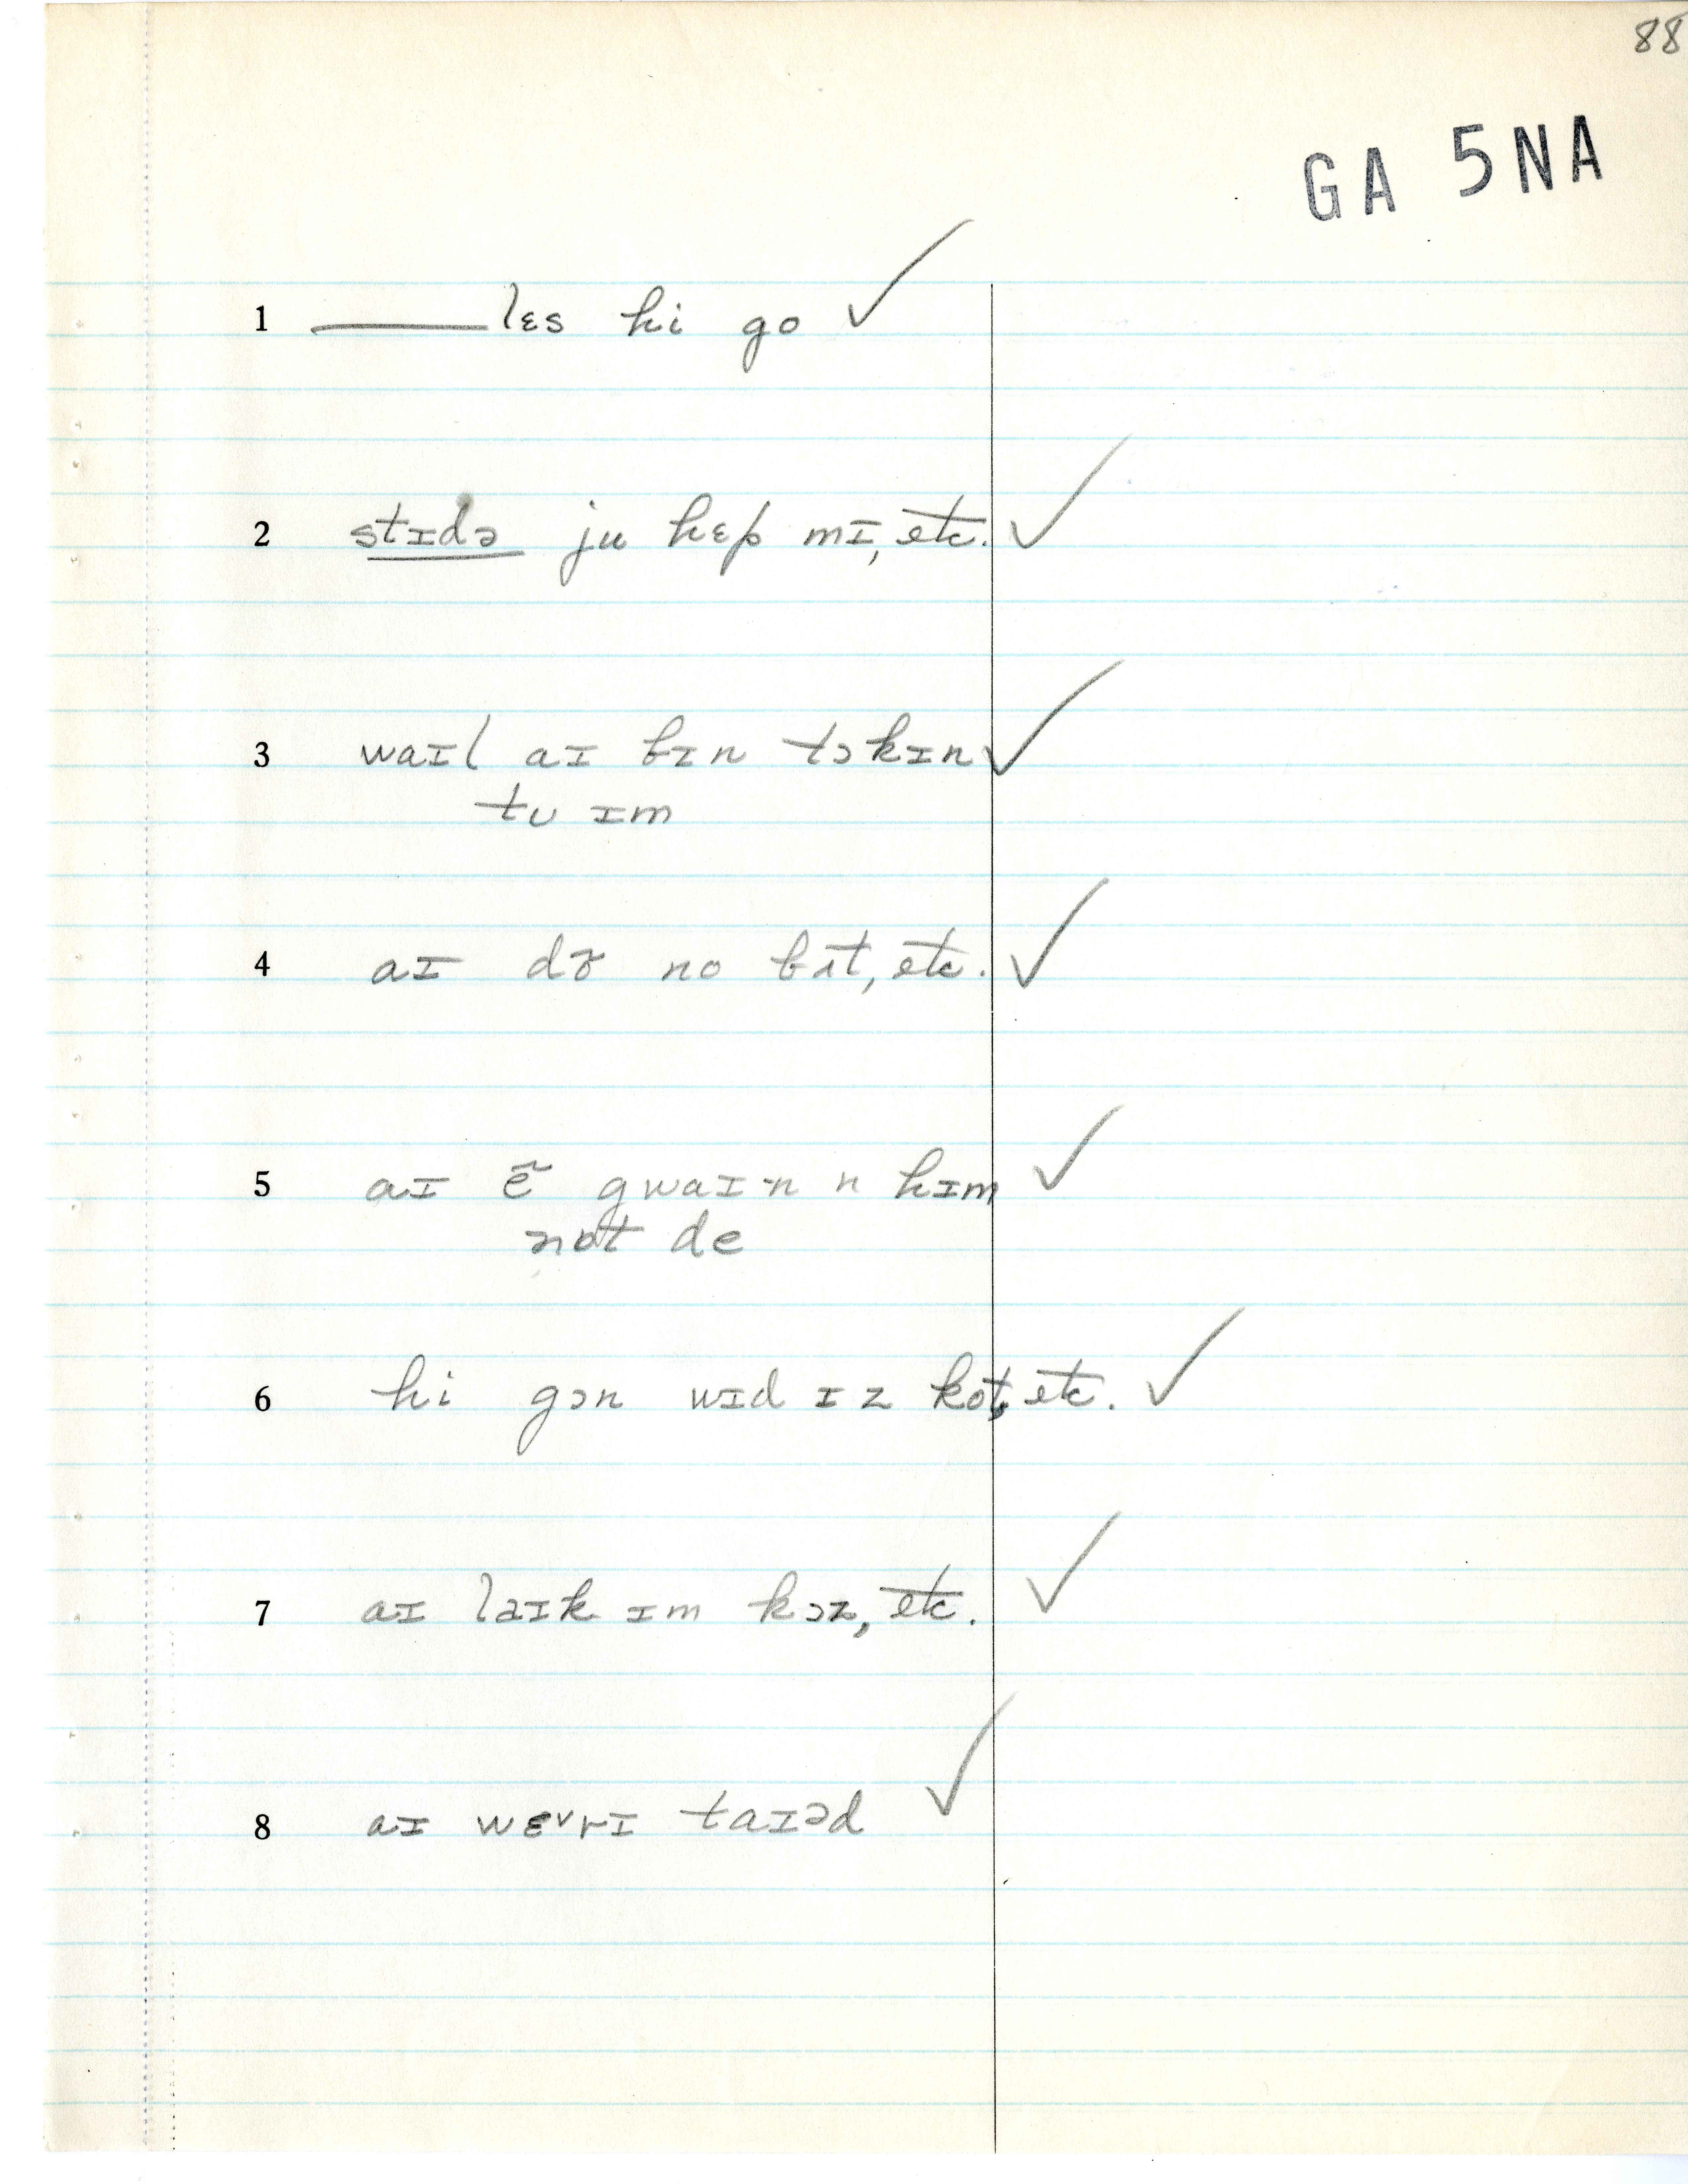 88
GA 5NA
1 ——— lɛs hi go ✓
2 stɪdə ju hɛp mɪ, etc. ✓
3 waɪl aɪ bɪn tɔkɪn ✓
tʊ ɪm
4 aɪ dõ no bɪt, etc. ✓
5 aɪ ẽ gwaɪn n hɪm ✓
not de
6 hi gɔn wɪd ɪz kot, etc. ✓
7 aɪ laɪk ɪm kɔz, etc. ✓
8 aɪ wɛvrɪ taɪəd ✓